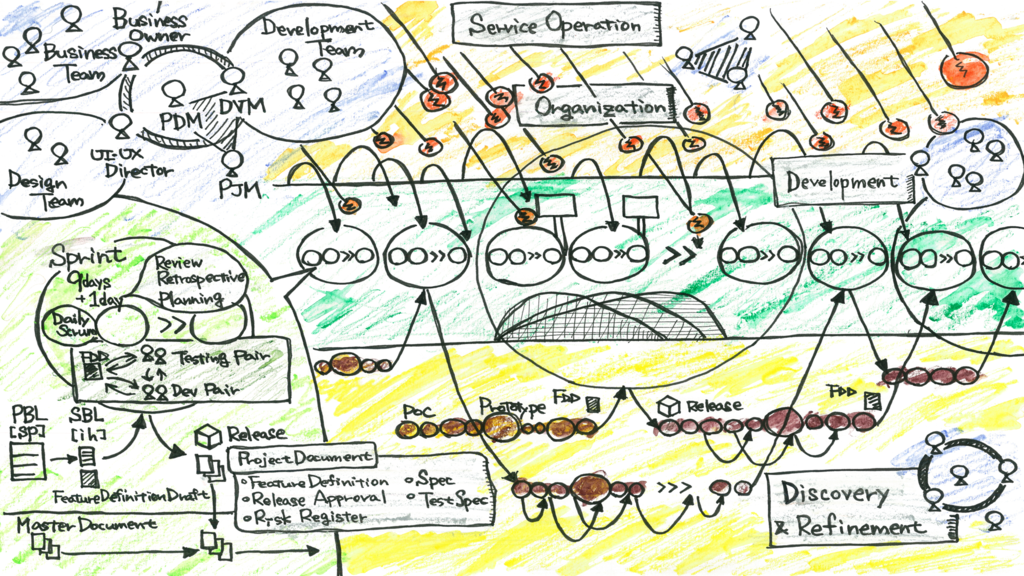 Business
Owner
Business
Team
Development
Team
PDM
DVM
UI-UX
Director
PJM
Design
Team
Service Operation
Organization
Development
Sprint
9days
+1day
Review
Retrospective
Planning
Daily
Scrum
>>
FDD
Testing Pair
Dev Pair
PBL
[sp]
SBL
[ih]
Feature Definition Draft
Release
Project Document
• Feature Definition
• Release Approval
• Risk Register
• Spec
• Test Spec
Master Document
>>
>>
>>
>>
>>
>>
>>
>>
>>
PoC
Prototype
FDD
Release
FDD
>>>
Discovery
& Refinement